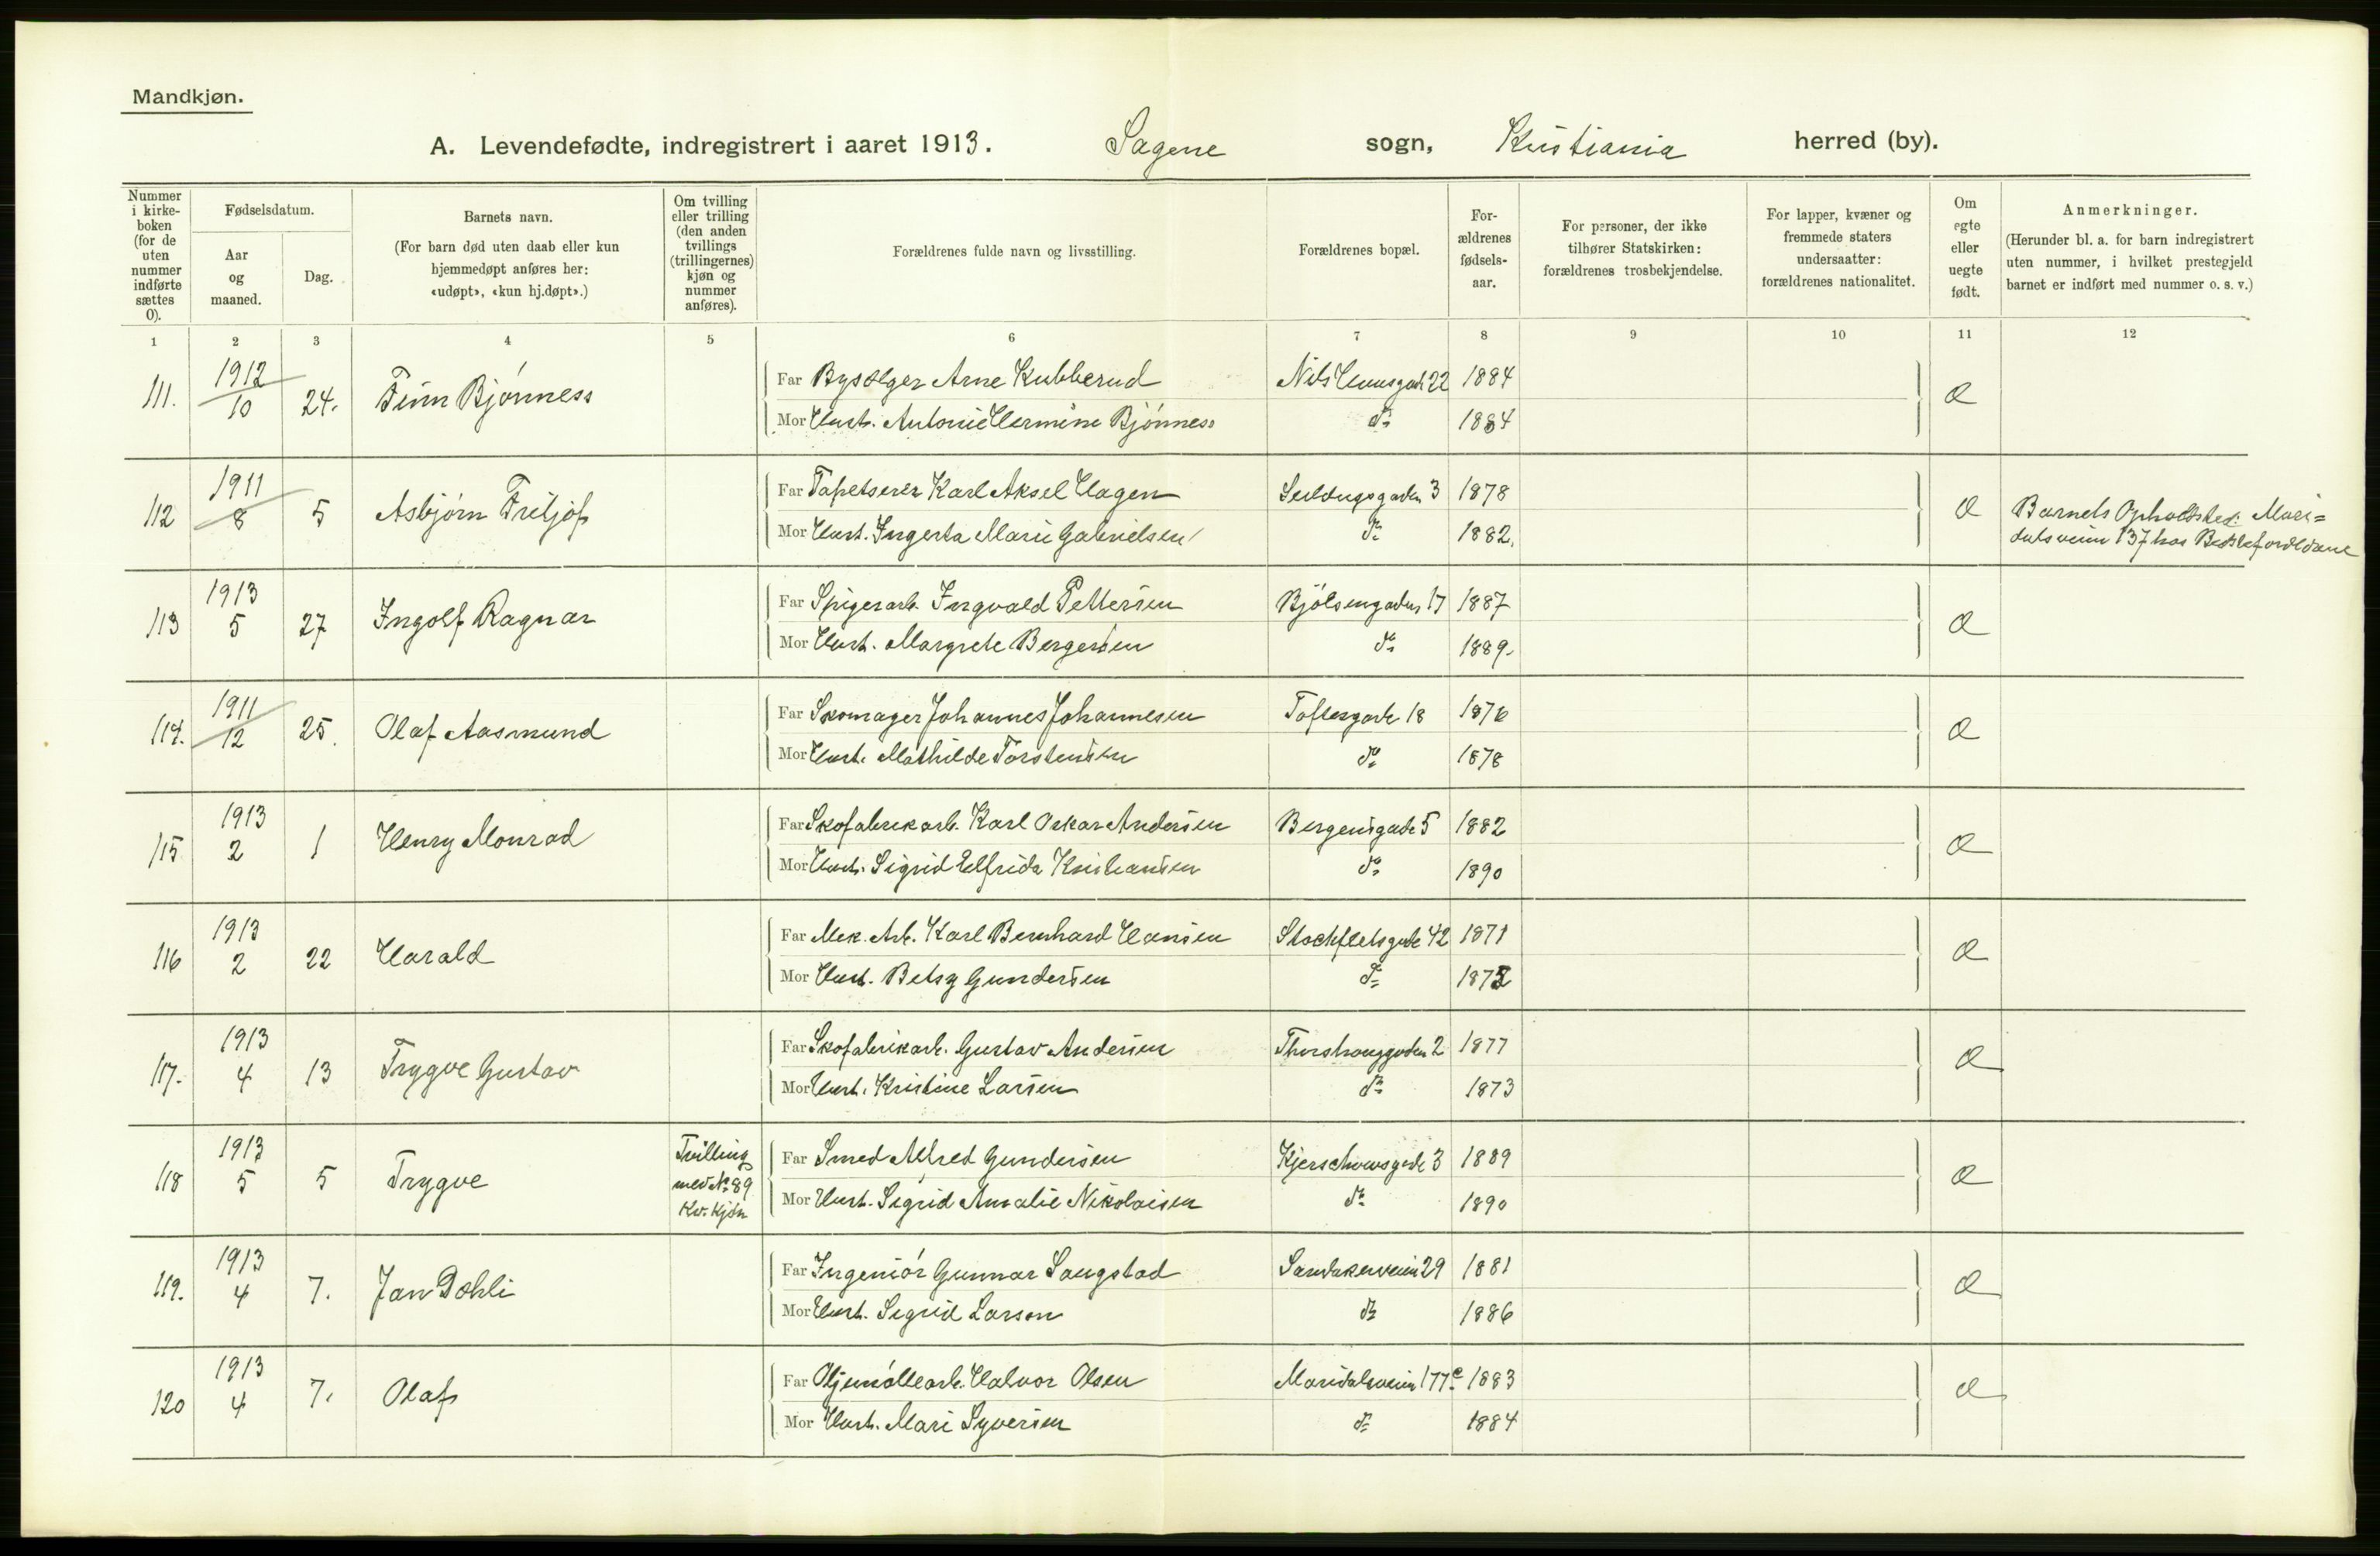 Mandkjøn.
A. Levendefødte, indregistrert i aaret 1913. Sagene sogn, Kristiania herred (by).
Nummer i kirke-boken (for de uten nummer indførte sættes 0).
Fødselsdatum.
Aar og maaned.
Dag.
Barnets navn.
(For barn død uten daab eller kun hjemmedøpt anføres her: «udøpt», «kun hj.døpt».)
Om tvilling eller trilling (den anden tvillings (trillingernes) kjøn og nummer anføres).
Forældrenes fulde navn og livsstilling.
Forældrenes bopæl.
For-ældrenes fødsels-aar.
For personer, der ikke tilhører Statskirken: forældrenes trosbekjendelse.
For lapper, kvæner og fremmede staters undersaatter: forældrenes nationalitet.
Om egte eller uegte født.
Anmerkninger.
(Herunder bl. a. for barn indregistrert uten nummer, i hvilket prestegjeld barnet er indført med nummer o. s. v.)
1 2 3 4 5 6 7 8 9 10 11 12
111. 1912 10 24. Finn Bjönness
Far Bysælger Arne Kubberud Nils Huusgade 22 1884
Mor Hust. Antonie Hermine Bjönness do 1884
112 1911 8 5 Asbjörn Fritjof
Far Tapetserer Karl Aksel Hagen 3 1878
Mor Hust. Ingerta Marie Gabrielsen do 1882.
Barnets Opholdsted: Mari=
dalsveien 137 hos Bedsteforældrene
113 1913 5 27 Ingolf Ragnar
Far Spigerarb. Ingvald Pettersen Bjölsengaden 17 1887
Mor Hust. Margrete Bergersen do 1889.
114. 1911 12 25. Olaf Aasmund
Far Skomager Johannes Johannesen Toftesgade 18 1876
Mor Hust. Mathilde Torstensen do 1878
115 1913 2 1 Henry Monrad
Far Skofabrikarb. Karl Oskar Andersen Bergensgade 5 1882
Mor Hust. Sigrid Elfrida Kristiansen do 1890
116 1913 2 22 Harald
Far Mek. Arb. Karl Bernhard Hansen Stockfletsgade 42 1871
Mor Hust. Betsy Gundersen do 1872
117. 1913 4 13 Trygve Gustav
Far Skofabrikarb. Gustav Andersen Thorshauggaden 2 1877
Mor Hust. Kristine Larsen do 1873
118 1913 5 5 Trygve
Tvilling
med No 89
Kv. Kjön
Far Smed Alfred Gundersen Kjerschowsgade 3 1889
Mor Hust. Sigrid Amalie Nikolaisen do 1890
119. 1913 4 7. Jan Dæhli
Far Ingeniör Gunnar Saugstad Sandakerveien 29 1881
Mor Hust. Sigrid Larson do 1886
120 1913 4 7. Olaf
Far Oljemöllearb. Halvor Olsen Maridalsveien 177c 1883
Mor Hust. Mari Syversen do 1884